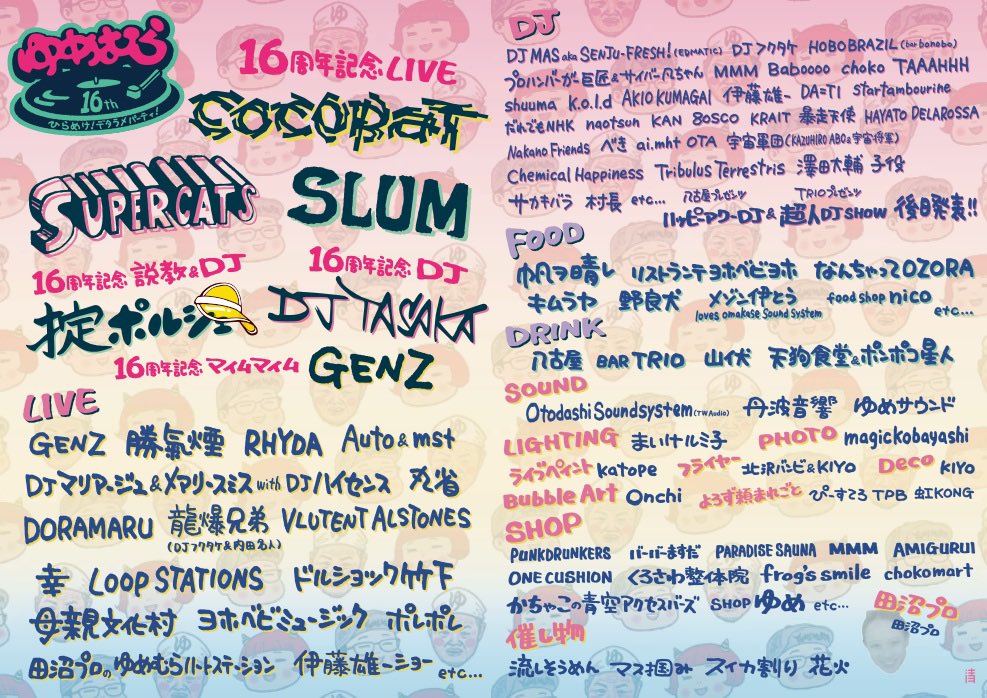 ゆめむら
16th
ひらめけ!デタラメパーティ!
16周年記念 LIVE
COCOBAT
SUPERCATS
SLUM
16周年記念 説教&DJ
掟ポルシェ
16周年記念 DJ
DJ TASAKA
16周年記念 マイムマイム
GENZ
LIVE
GENZ 勝氣煙 RHYDA Auto & mst
DJマリアージュ&メアリースミス with DJハイセンス 丸省
DORAMARU 龍爆兄弟 VLUTENT ALSTONES
(DJフクタケ&内田名人)
幸 LOOP STATIONS ドルショック竹下
母親文化村 ヨホベビミュージック ポレポレ
田沼プロのゆめむらハートステーション 伊藤雄一ショー etc...
DJ
DJ MAS aka SENJU-FRESH! (EDMATIC) DJフクタケ HOBOBRAZIL (bar bonobo)
プロハンバーガー巨匠&サイバー凡ちゃん MMM Baboooo choko TAAAHHH
shuuma k.o.l.d AKIO KUMAGAI 伊藤雄一 DA=TI startambourine
だれでもNHK naotsun KAN 80SCO KRAIT 暴走天使 HAYATO DELAROSSA
Nakano Friends べき ai.mht OTA 宇宙軍団(KAZUHIRO ABO&宇宙将軍)
Chemical Happiness Tribulus Terrestris 澤田大輔 子役
サカキバラ 村長 etc... 八古屋プレゼンツ TRIOプレゼンツ
ハッピーアワーDJ & 超人DJ SHOW 後日発表!!
FOOD
帆ヲ晴レ リストランテヨホベビヨホ なんちゃってOZORA
キムラヤ 野良犬 メゾン伊とう food shop nico
loves omakase Sound System etc...
DRINK
八古屋 BAR TRIO 山伏 天狗食堂&ポンポコ星人
SOUND
Otodashi Soundsystem (TW Audio) 丹波音響 ゆめサウンド
LIGHTING まいけルミ子 PHOTO magickobayashi
ライブペイント katope フライヤー 北沢バービ&KIYO Deco KIYO
Bubble Art Onchi よろず頼まれごと ぴーすてろ TPB 虹KONG
SHOP
PUNKDRUNKERS バーバーますだ PARADISE SAUNA MMM AMIGURUI
ONE CUSHION くろさわ整体院 frog's smile chokomart
かちゃこの青空アクセバーズ SHOP ゆめ etc...
田沼プロ
田沼プロ
催し物
流しそうめん マス掴み スイカ割り 花火